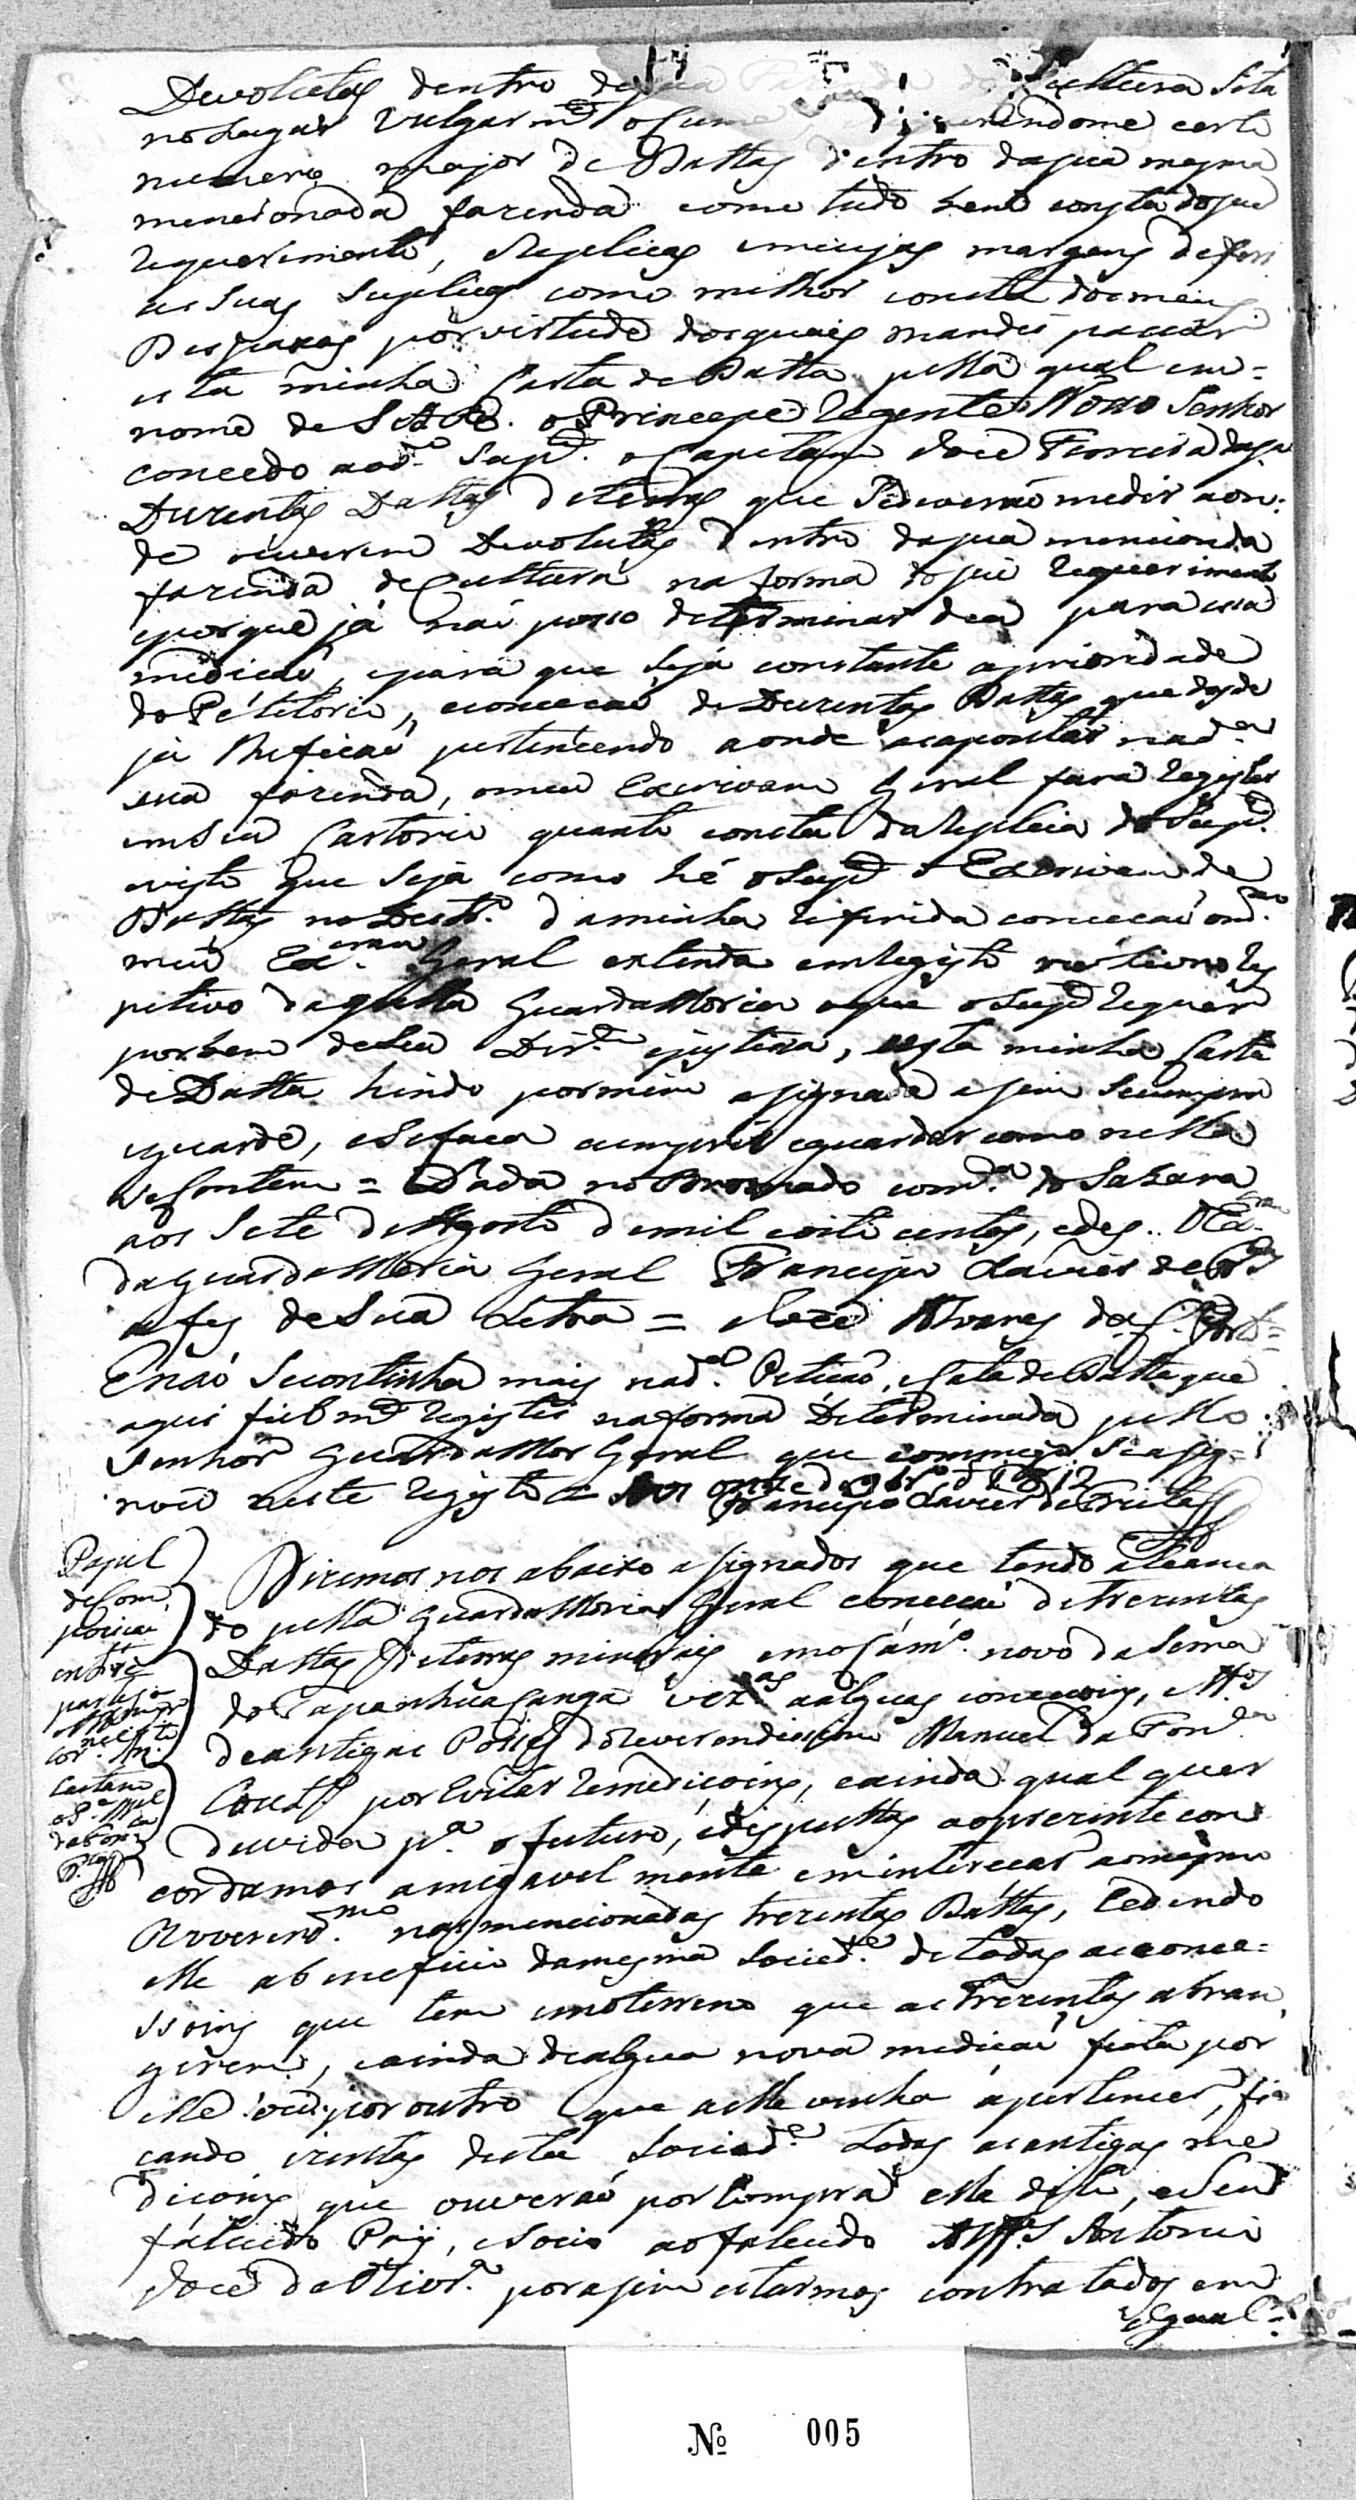 Devolutas dentro da sua Cultura Sita
no Lugar Vulgarm.e o Cume rindome certo
numero mayor de Dattas dentro dasua mesma
mencionada fazenda como tudo bem consta doseu
requerimento, Replicas emcujas margens defiri
as suas Suplicas como milhor consta dosmeus
Despaxos porvirtude dosquais mandei passar
esta minha Carta de Datta pella qual em=
nome de S A R. o Principe Regente Nosso Senhor
concedo aod.o Sup.e o Capitam Joze Ferreira
Duzentas Dattas deterras que Sedeverão medir aon:
de ouverem Devolutas dentro dasua mencionada
fazenda de Cultura na forma doseu Requerimento
eporque já naó posso determinar dea para essa
medicaó, epara que Seja constante aprioridade
do Petitorio, econcecaó de Duzentas Dattas que desde
já lheficaó pertencendo aonde as apontar nad.a
sua fazenda, omeu Escrivam Geral fará Registar
emSeu Cartorio quanto consta da Replica do Sup.e
evisto que Seja como hé o Sup.e o Escrivam de
Dattas no Destr.o daminha referida concecaó om.mo
meu Es.cram Geral extenda emregisto res
petivo daquella Guardamoria oque o Sup.e requer
porbem deSeu Dir.to ejustiça, eesta minha Carta
deDatta hindo pormim asignada asim Secumpra
eguarde, eSefaca cumprir eguardar como nella
Se Contem = Dada no Brumado com.ca do Sabara
aos Sete de Agosto demil oito centos, edes. O Es.cram
daGuardaMoria Geral Francisco Xavier de
afes deSua Letra = Joze Alvares da C. Porto=
Enaó Secontinha mais nad.a Peticaó, eCarta de Datta que
aqui fielm.te registei naforma Determinada pello
Senhor Guarda Mor Geral que commigo Seasig=
nou neste Registo = Aos onze de 9br.o d 1812
Francisco Xavier de Freitas
Papel
deCom
posicaó
entre
partes
o
Cor. An.
Caetano
o R. M.el
da Fon.ca
Dizemos nos abaixo asignados que tendo alcanca
do pella GuardaMoria Geral concecaó detrezentas
Dattas deterras minerais emoCám.o novo da Serra
do Tapanhuacanga vez.as aalguas concecoins,
deantigas Posses do Reverendissimo Manuel da Fon.ca
Costa, porEvitar remedicoins, eainda qual quer
duvida p.a ofuturo, edisputtas aoprezente con
cordamos amigavel mente eminterecar aomesmo
Reverend.mo nas mencionadas trezentas Dattas, Cedendo
elle abeneficio damesma Socied.e detodas asconce=
ssoins que tem emoterreno que astrezentas abran
gerem, eainda dealgua nova medicaó feita por
elle ou por outro que aelle venha apertencer, fi
cando izentas desta Socied.e todas asantigas me
dicoins que ouveraó por Compra elle dito, eSeu
falecido Pay, eSocio aofalecido Alf.s Antonio
Joze deOliv.ra porasim estarmos contratados em
Igual.
Nº 005